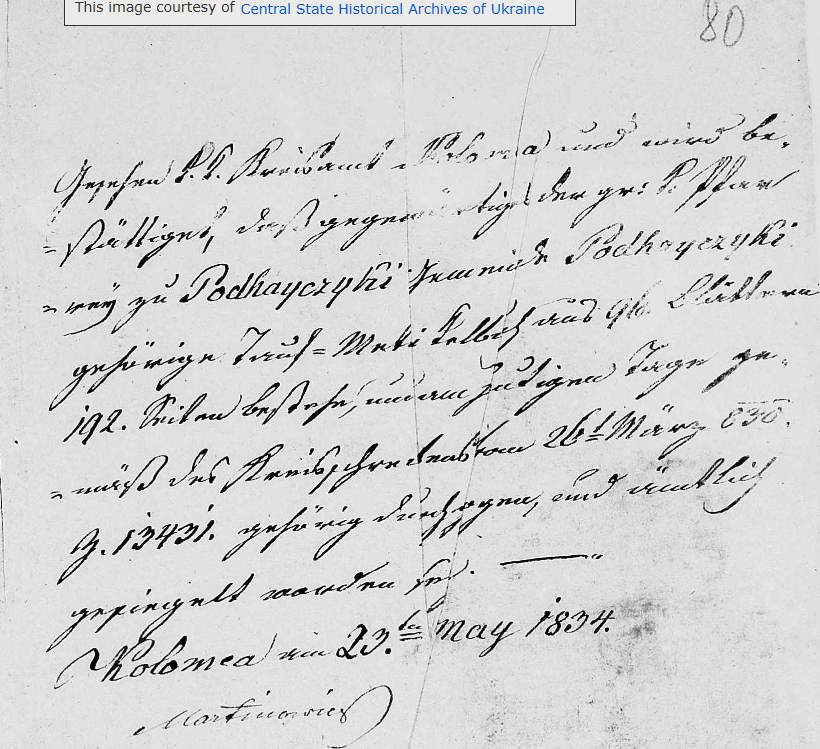 This image courtesy of Central State Historical Archives of Ukraine
80
Gesehen k. k. Kreisamt Kolomea und wird be-
=stättiget, daß gegenwärtiges der gr: k. Pfar
=rey zu Podhayczyki Gemeinde Podhayczyki
gehörige Tauf= Matrikelbuch aus 96. Blättern
192. Seiten bestehe, und am heutigen Tage ge-
=mäß des Kreisschreibens vom 26t März 830.
Z. 13431. gehörig durchzogen, und ämtlich
gesiegelt worden sey.
Kolomea am 23.ten May 1834.
Martinowics